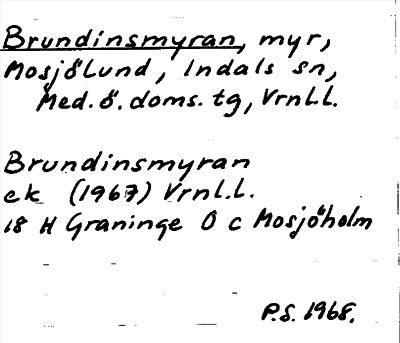 Brundinsmyran, myr,
Mosjölund, Indals sn,
Med. ö. doms. tg, Vrnl.l.
Brundinsmyran
ek (1967) Vrnl.l.
18 H Graninge O c Mosjöholm
P.S. 1968.